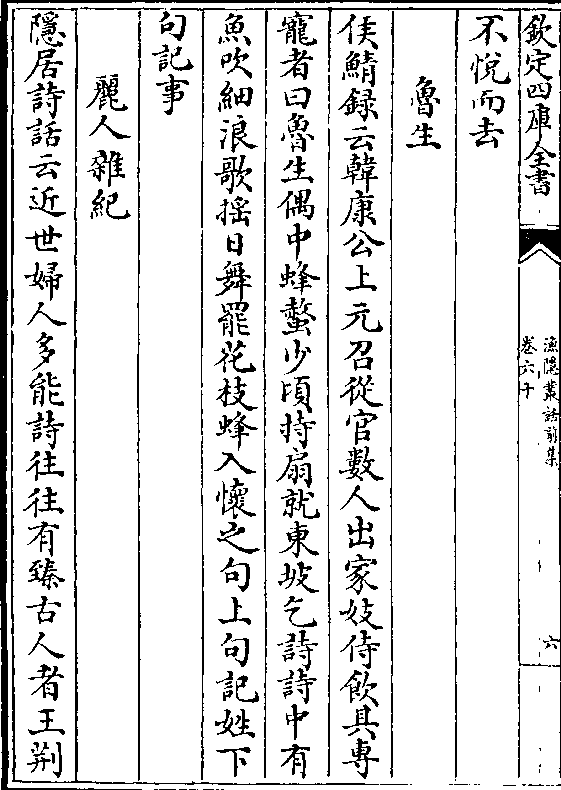 欽定四庫全書
漁隱叢話前集
卷六十
六
不悦而去
魯生
侯鯖録云韓康公上元召從官數人出家妓侍飲其專
寵者曰魯生偶中蜂螫少頃持扇就東坡乞詩詩中有
魚吹細浪歌揺日舞罷花枝蜂入懷之句上句記姓下
句記事
麗人雜紀
隱居詩話云近世婦人多能詩往往有臻古人者王荆